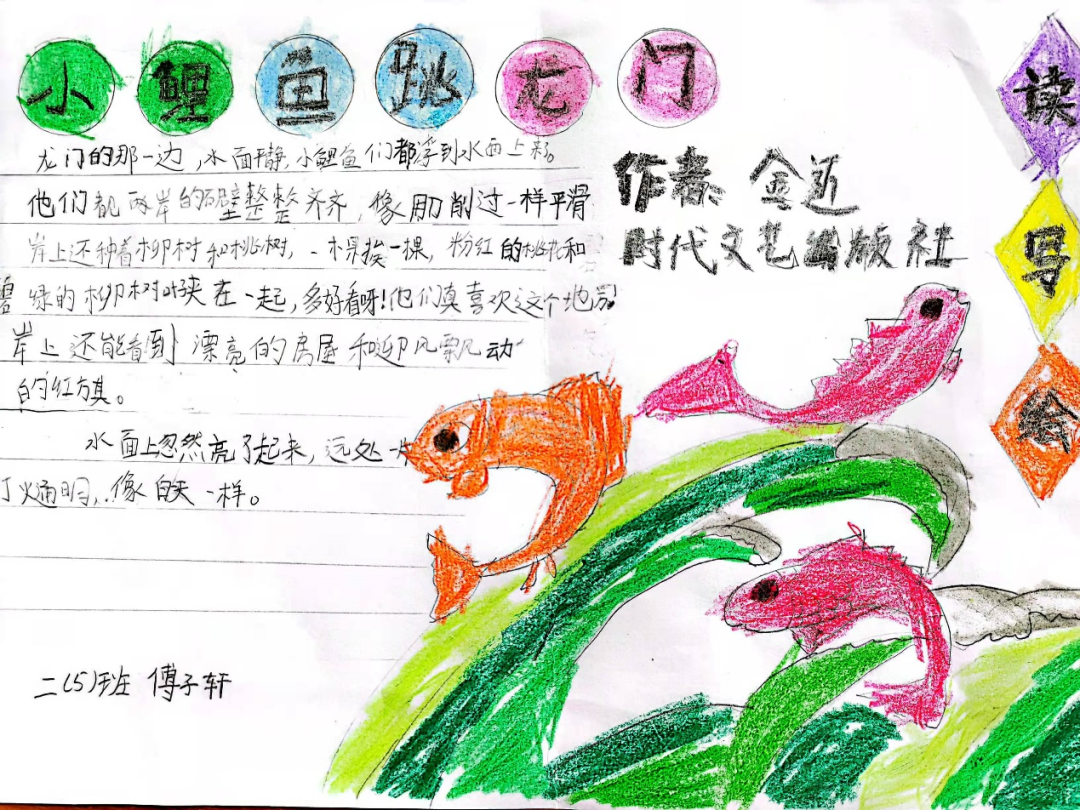 小鲤鱼跳龙门
龙门的那一边，水面平静，小鲤鱼们都浮到水面上来。
他们看见两岸的石壁整整齐齐，像用刀削过一样平滑
岸上还种着柳树和桃树，一棵挨一棵，粉红的桃花和
碧绿的柳树叶夹在一起，多好看呀！他们真喜欢这个地方。
岸上还能看到漂亮的房屋和迎风飘动
的红旗。
水面上忽然亮了起来，远处一片
灯火通明，像白天一样。
二(5)班 傅子轩
作者：金近
时代文艺出版社
读
写
绘